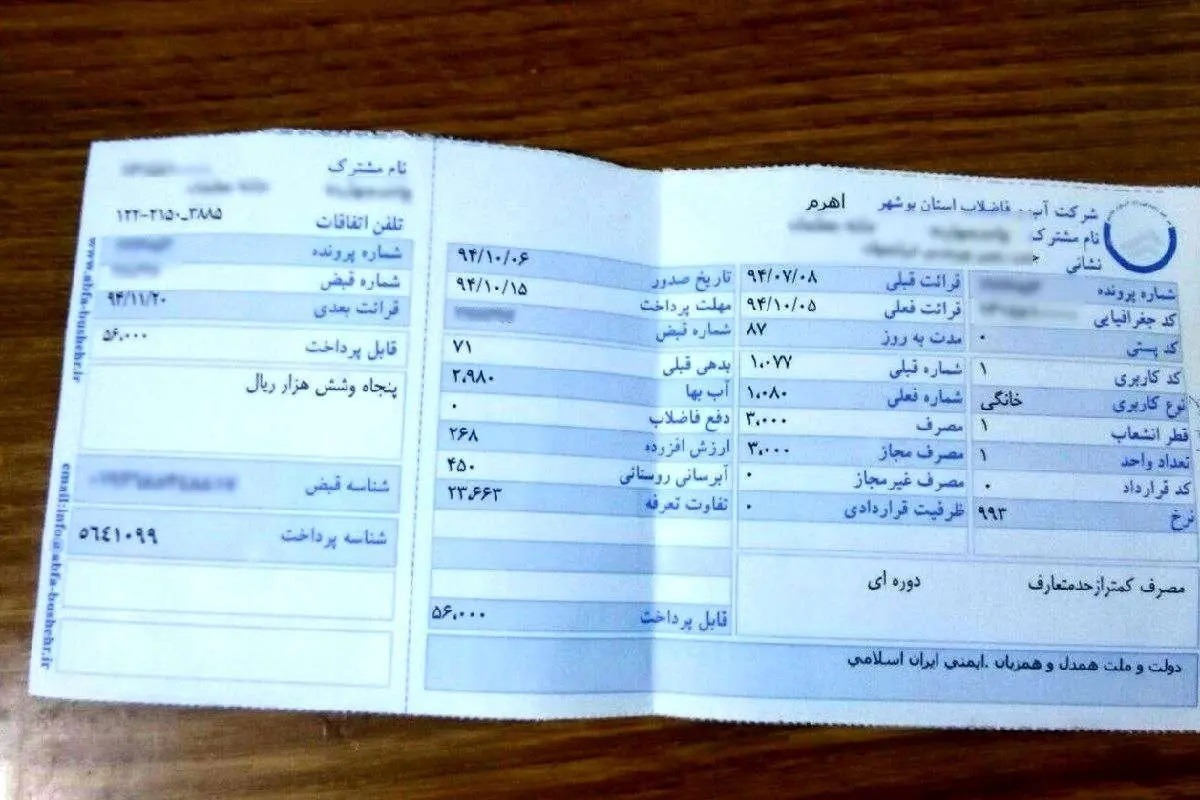 شرکت آب و فاضلاب استان بوشهر اهرم
نام مشترک
نشانی
شماره پرونده
کد جغرافیایی
کد پستی ۰
کد کاربری ۱
نوع کاربری خانگی
قطر انشعاب ۱
تعداد واحد ۱
کد قرارداد ۰
نرخ ۹۹۳
قرائت قبلی ۹۴/۰۷/۰۸
قرائت فعلی ۹۴/۱۰/۰۵
مدت به روز ۸۷
شماره قبلی ۱،۰۷۷
شماره فعلی ۱،۰۸۰
مصرف ۳،۰۰۰
مصرف مجاز ۳،۰۰۰
مصرف غیر مجاز ۰
ظرفیت قراردادی ۰
مصرف کمتر از حد متعارف دوره ای
تاریخ صدور ۹۴/۱۰/۰۶
مهلت پرداخت ۹۴/۱۰/۱۵
شماره قبض
بدهی قبلی ۷۱
آب بها ۲،۹۸۰
دفع فاضلاب ۰
ارزش افزوده ۲۶۸
آبرسانی روستائی ۴۵۰
تفاوت تعرفه ۲۳،۶۶۳
قابل پرداخت ۵۶،۰۰۰
دولت و ملت همدل و همزبان .ایمنی ایران اسلامی
نام مشترک
تلفن اتفاقات ۱۲۲-۲۱۵۰_۳۸۸۵
شماره پرونده
شماره قبض
قرائت بعدی ۹۴/۱۱/۲۰
قابل پرداخت ۵۶،۰۰۰
پنجاه وشش هزار ریال
شناسه قبض
شناسه پرداخت ۵۶۴۱۰۹۹
www.abfa-bushehr.ir
email:info@abfa-bushehr.ir